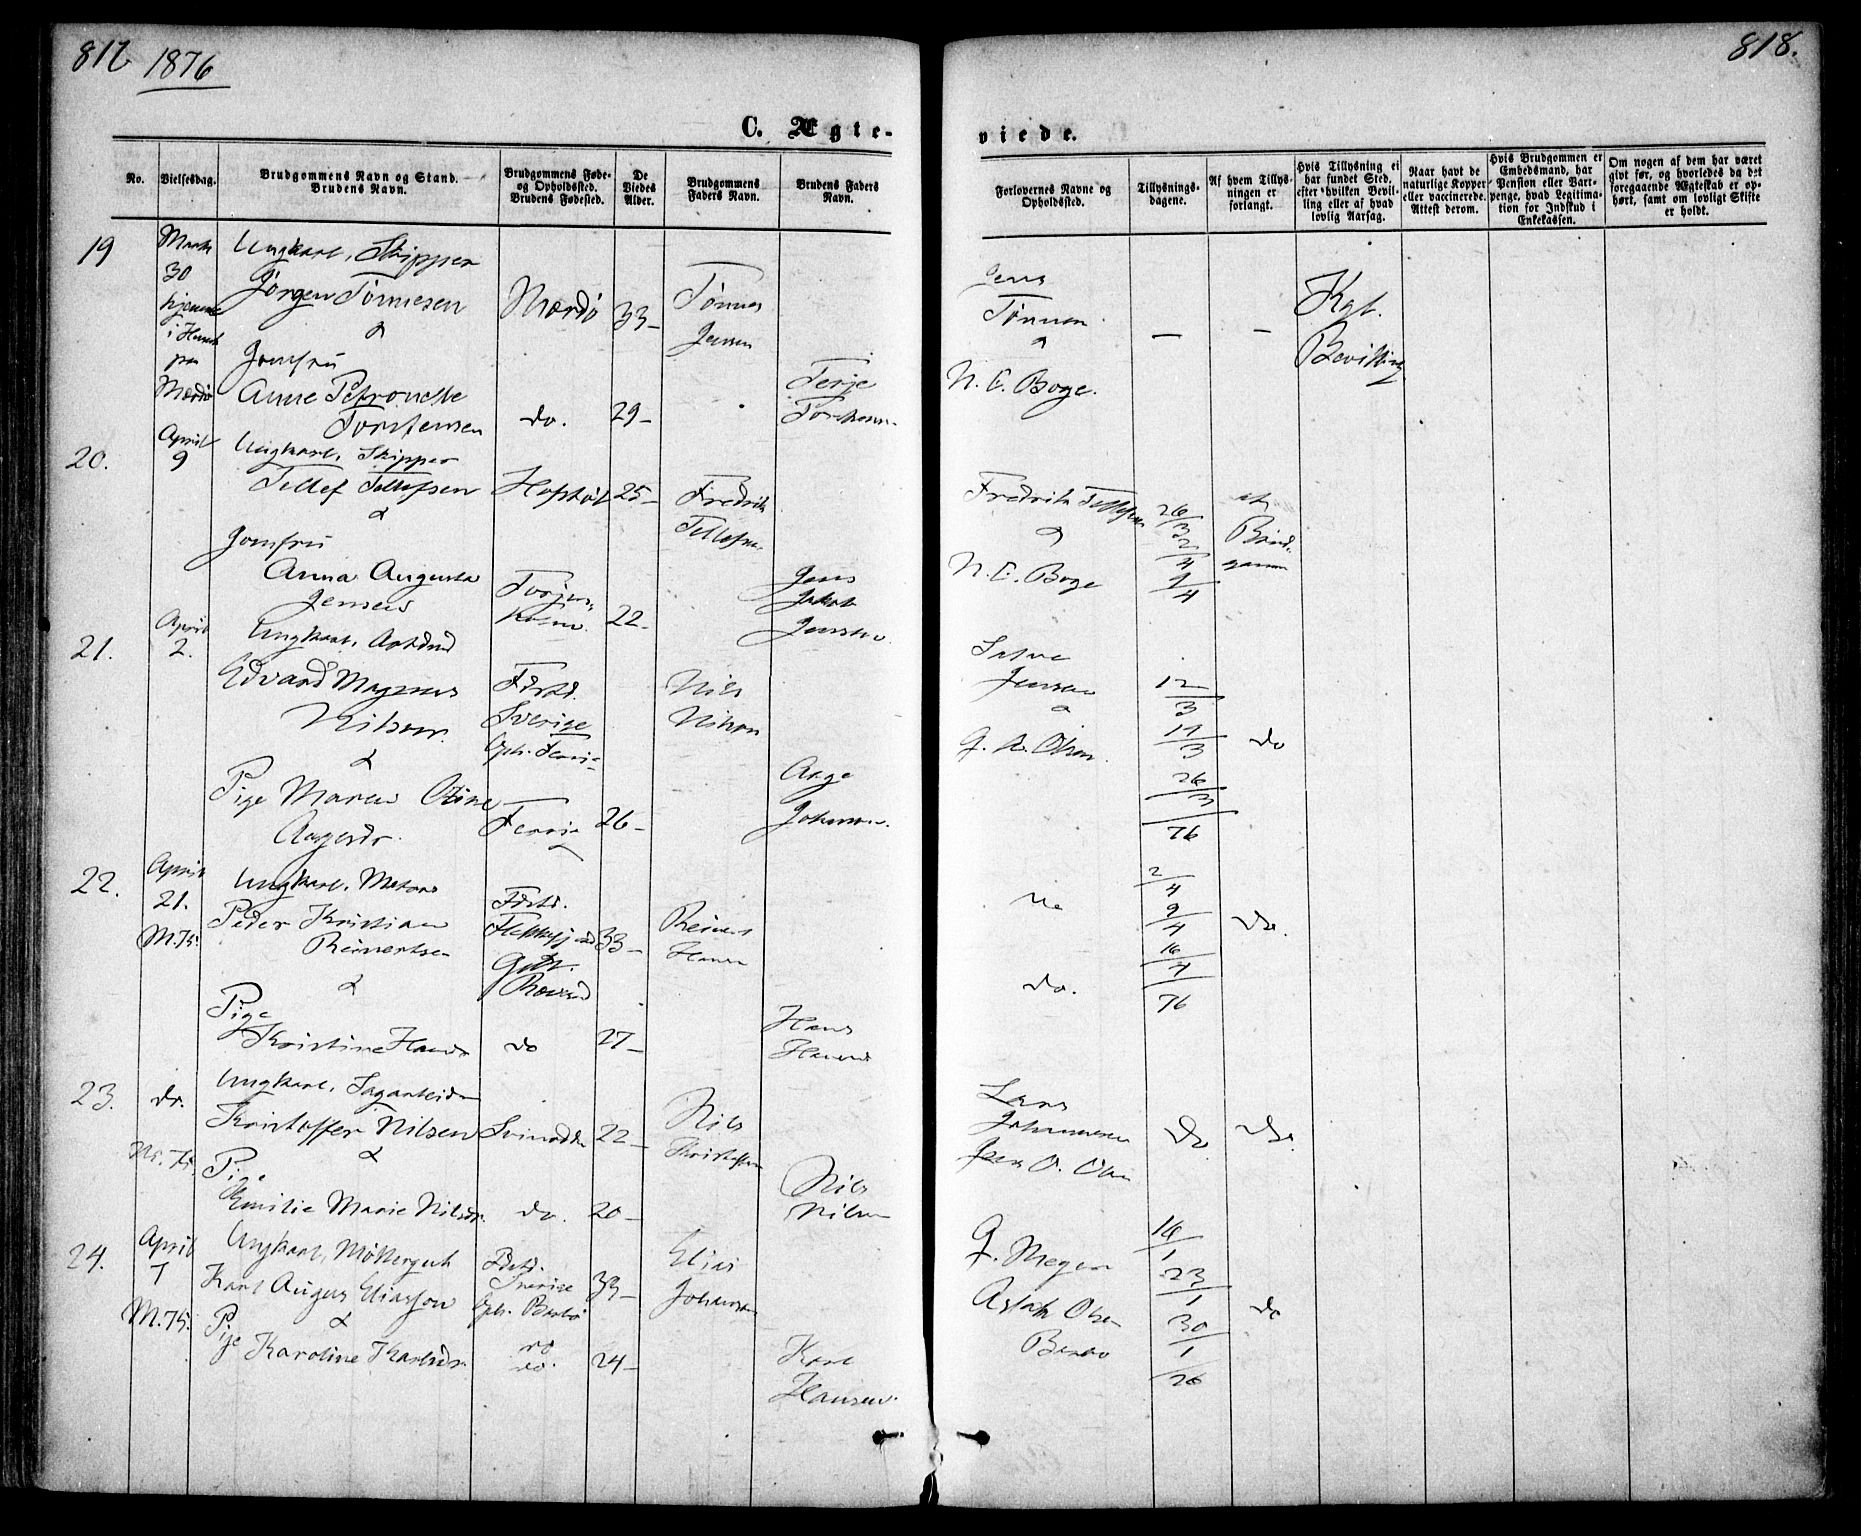 817
1876
818.
C. Ægte-
viede.
No.
Vielsesdag.
Brudgommens Navn og Stand.
Brudens Navn.
Brudgommens Føde-
og Opholdssted.
Brudens Fødested.
De
Viedes
Alder.
Brudgommens
Faders Navn.
Brudens Faders
Navn.
Forlovernes Navne og
Opholdssted.
Tillysnings-
dagene.
Af hvem Tillys-
ningen er
forlangt.
Hvis Tillysning ei
har fundet Sted,
efter hvilken Bevil-
ling eller af hvad
lovlig Aarsag.
Naar havt de
naturlige Kopper
eller vaccinerede.
Attest derom.
Hvis Brudgommen er
Embedsmand, har
Pension eller Vart-
penge, hvad Legitima-
tion for Indskud i
Enkekassen.
Om nogen af dem har været
givt før, og hvorledes da det
foregaaende Ægteskab er op-
hørt, samt om lovligt Skifte
er holdt.
19
Marts
30
hjemme
i Huset
paa
Mærdø
Ungkarl, Skipper
Jørgen Tønnesen
&
Jomfru
Anne Petronelle
Torstensen
Mærdø
do.
33-
29-
Tønnes
Jensen
Terje
Torstensen
Jens
Tønnesen
&
N. C. Boge.
—
—
Kgl.
Bevilling
20.
April
9
Ungkarl, Skipper
Tellef Tellefsen
&
Jomfru
Anna Augusta
Jensen
25-
22-
Fredrik
Tellefsen
Jens
Jakob
Jensen
Fredrik Tellefsen
&
N. C. Boge
26/3
2/4
9/4
af
Brud-
gommen
21.
April
2.
Ungkarl,
Edvard Magnus
Nilsen
&
Pige Maren Otine
Aagesdr.
Født.
Sverige
26-
Nils
Nilson
Aage
Johnsen
Jensen
&
G. A. Olsen
12/3
19/3
26/3
76
do
22.
April
21.
M. 75.
Ungkarl, Matros
Peder Kristian
Reinertsen
&
Pige
Kristine Hansdr
Født.
do
33-
27-
Reinert
Hansen
Hans
Hansen
do.
2/4
9/4
16/4
76
do.
23.
do.
M. 75.
Ungkarl, Sagarbeider
Kristoffer Nilsen
&
Pige
Emilie Marie Nilsdr.
do.
22-
20-
Nils
Kristoffersen
Nils
Nilsen
Lars
Johannesen
Jens O. Olsen
do
do.
24.
April
7
M. 75.
Ungkarl, Møllergut
Karl August Eliasson
&
Pige Karoline Karlsdr.
Født.
Sverige
Oph. Barbo
do.
33-
24-
Elias
Johanson
Karl
Hansen.
G. Meyer
Aslak Olsen
Barbo
16/1
23/1
30/1
76
do